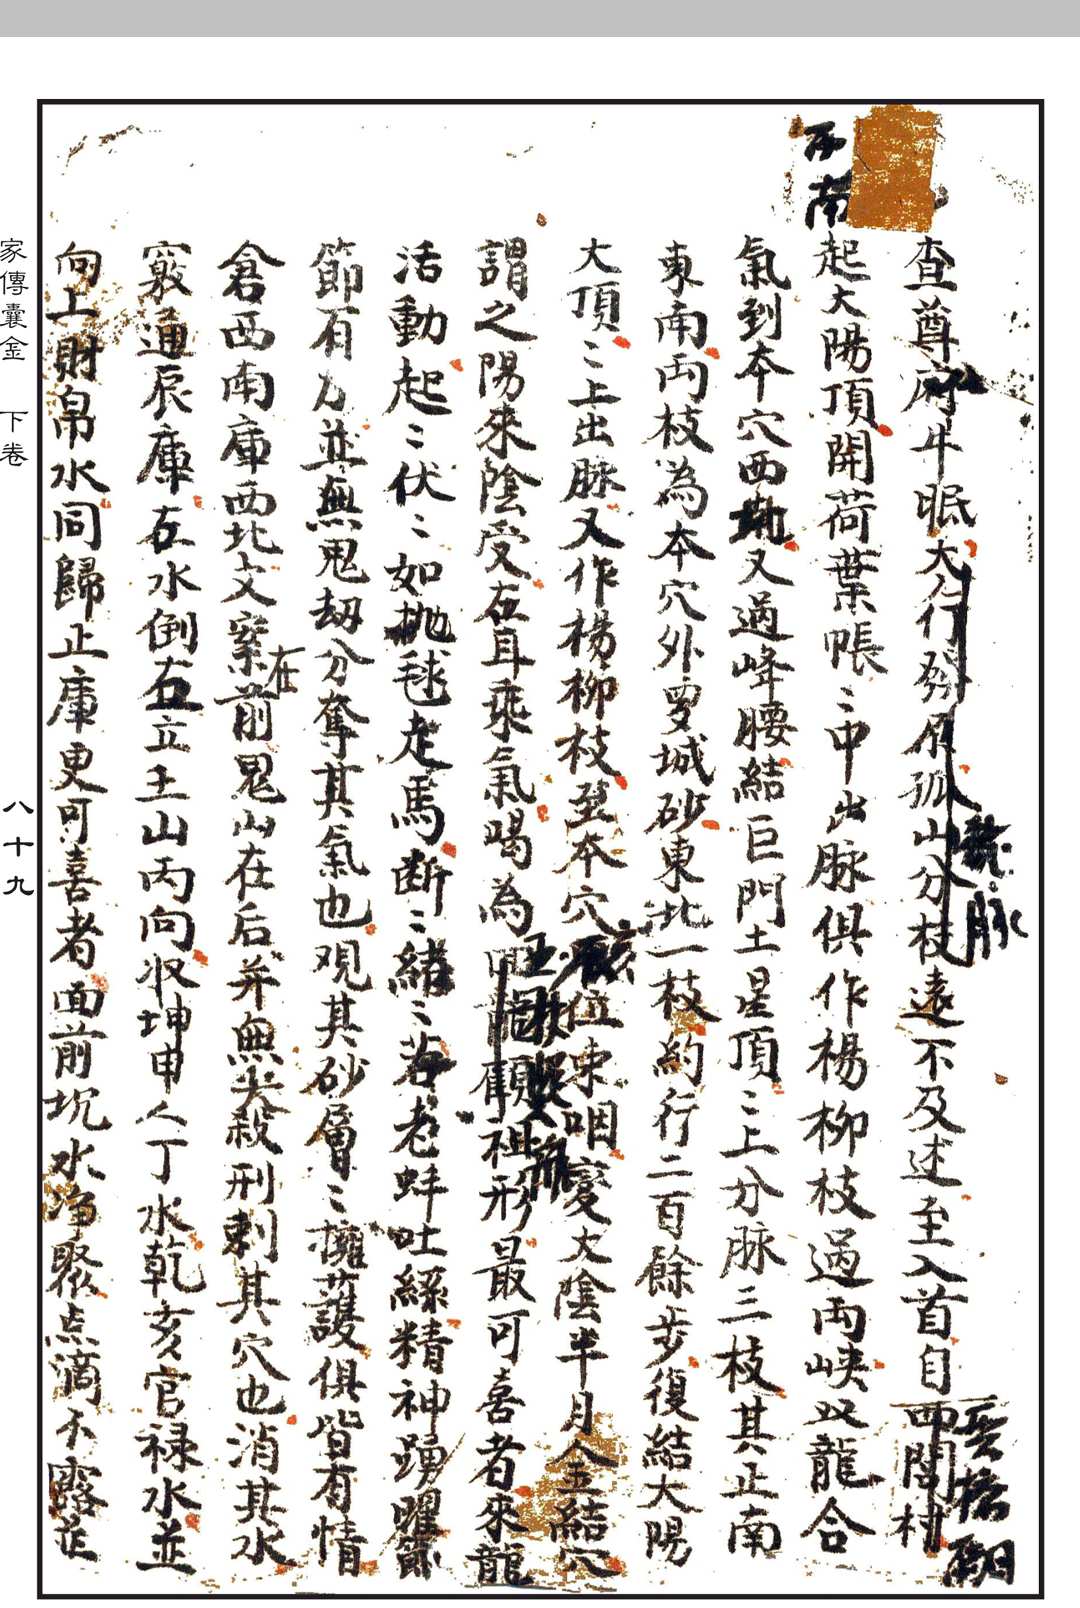 西南
查尊府牛眠大行發外孤山分枝遠不及述至入首自西閣村
龍脉
起大陽頂開荷葉帳〻中出脉俱作楊柳枝過両峽双龍合
氣到本穴西北又過峰腰結巨門土星頂〻上分脉三枝其正南
東南両枝為本穴外罗城砂東北一枝約行二百餘步復結大陽
大頂〻上出脉又作楊柳枝至本穴亥位束咽变太陰半月金結穴
謂之陽來陰受左耳乘氣喝為龍顧祖形最可喜者來龍
活動起〻伏〻如抛毬走馬断〻緒〻若老蚌吐絲精神踴曜節
節有力並無鬼刼分奪其氣也观其砂層〻擁護俱皆有情
倉西南庫西北文案在前鬼山在后并無尖殺刑剌其穴也消其水
竅通辰庫左水倒右立壬山丙向收坤申人丁水乾亥官禄水並
向上財帛水同歸正庫更可喜者面前坑水净聚点滴不露芷
家傳囊金　下卷
八十九